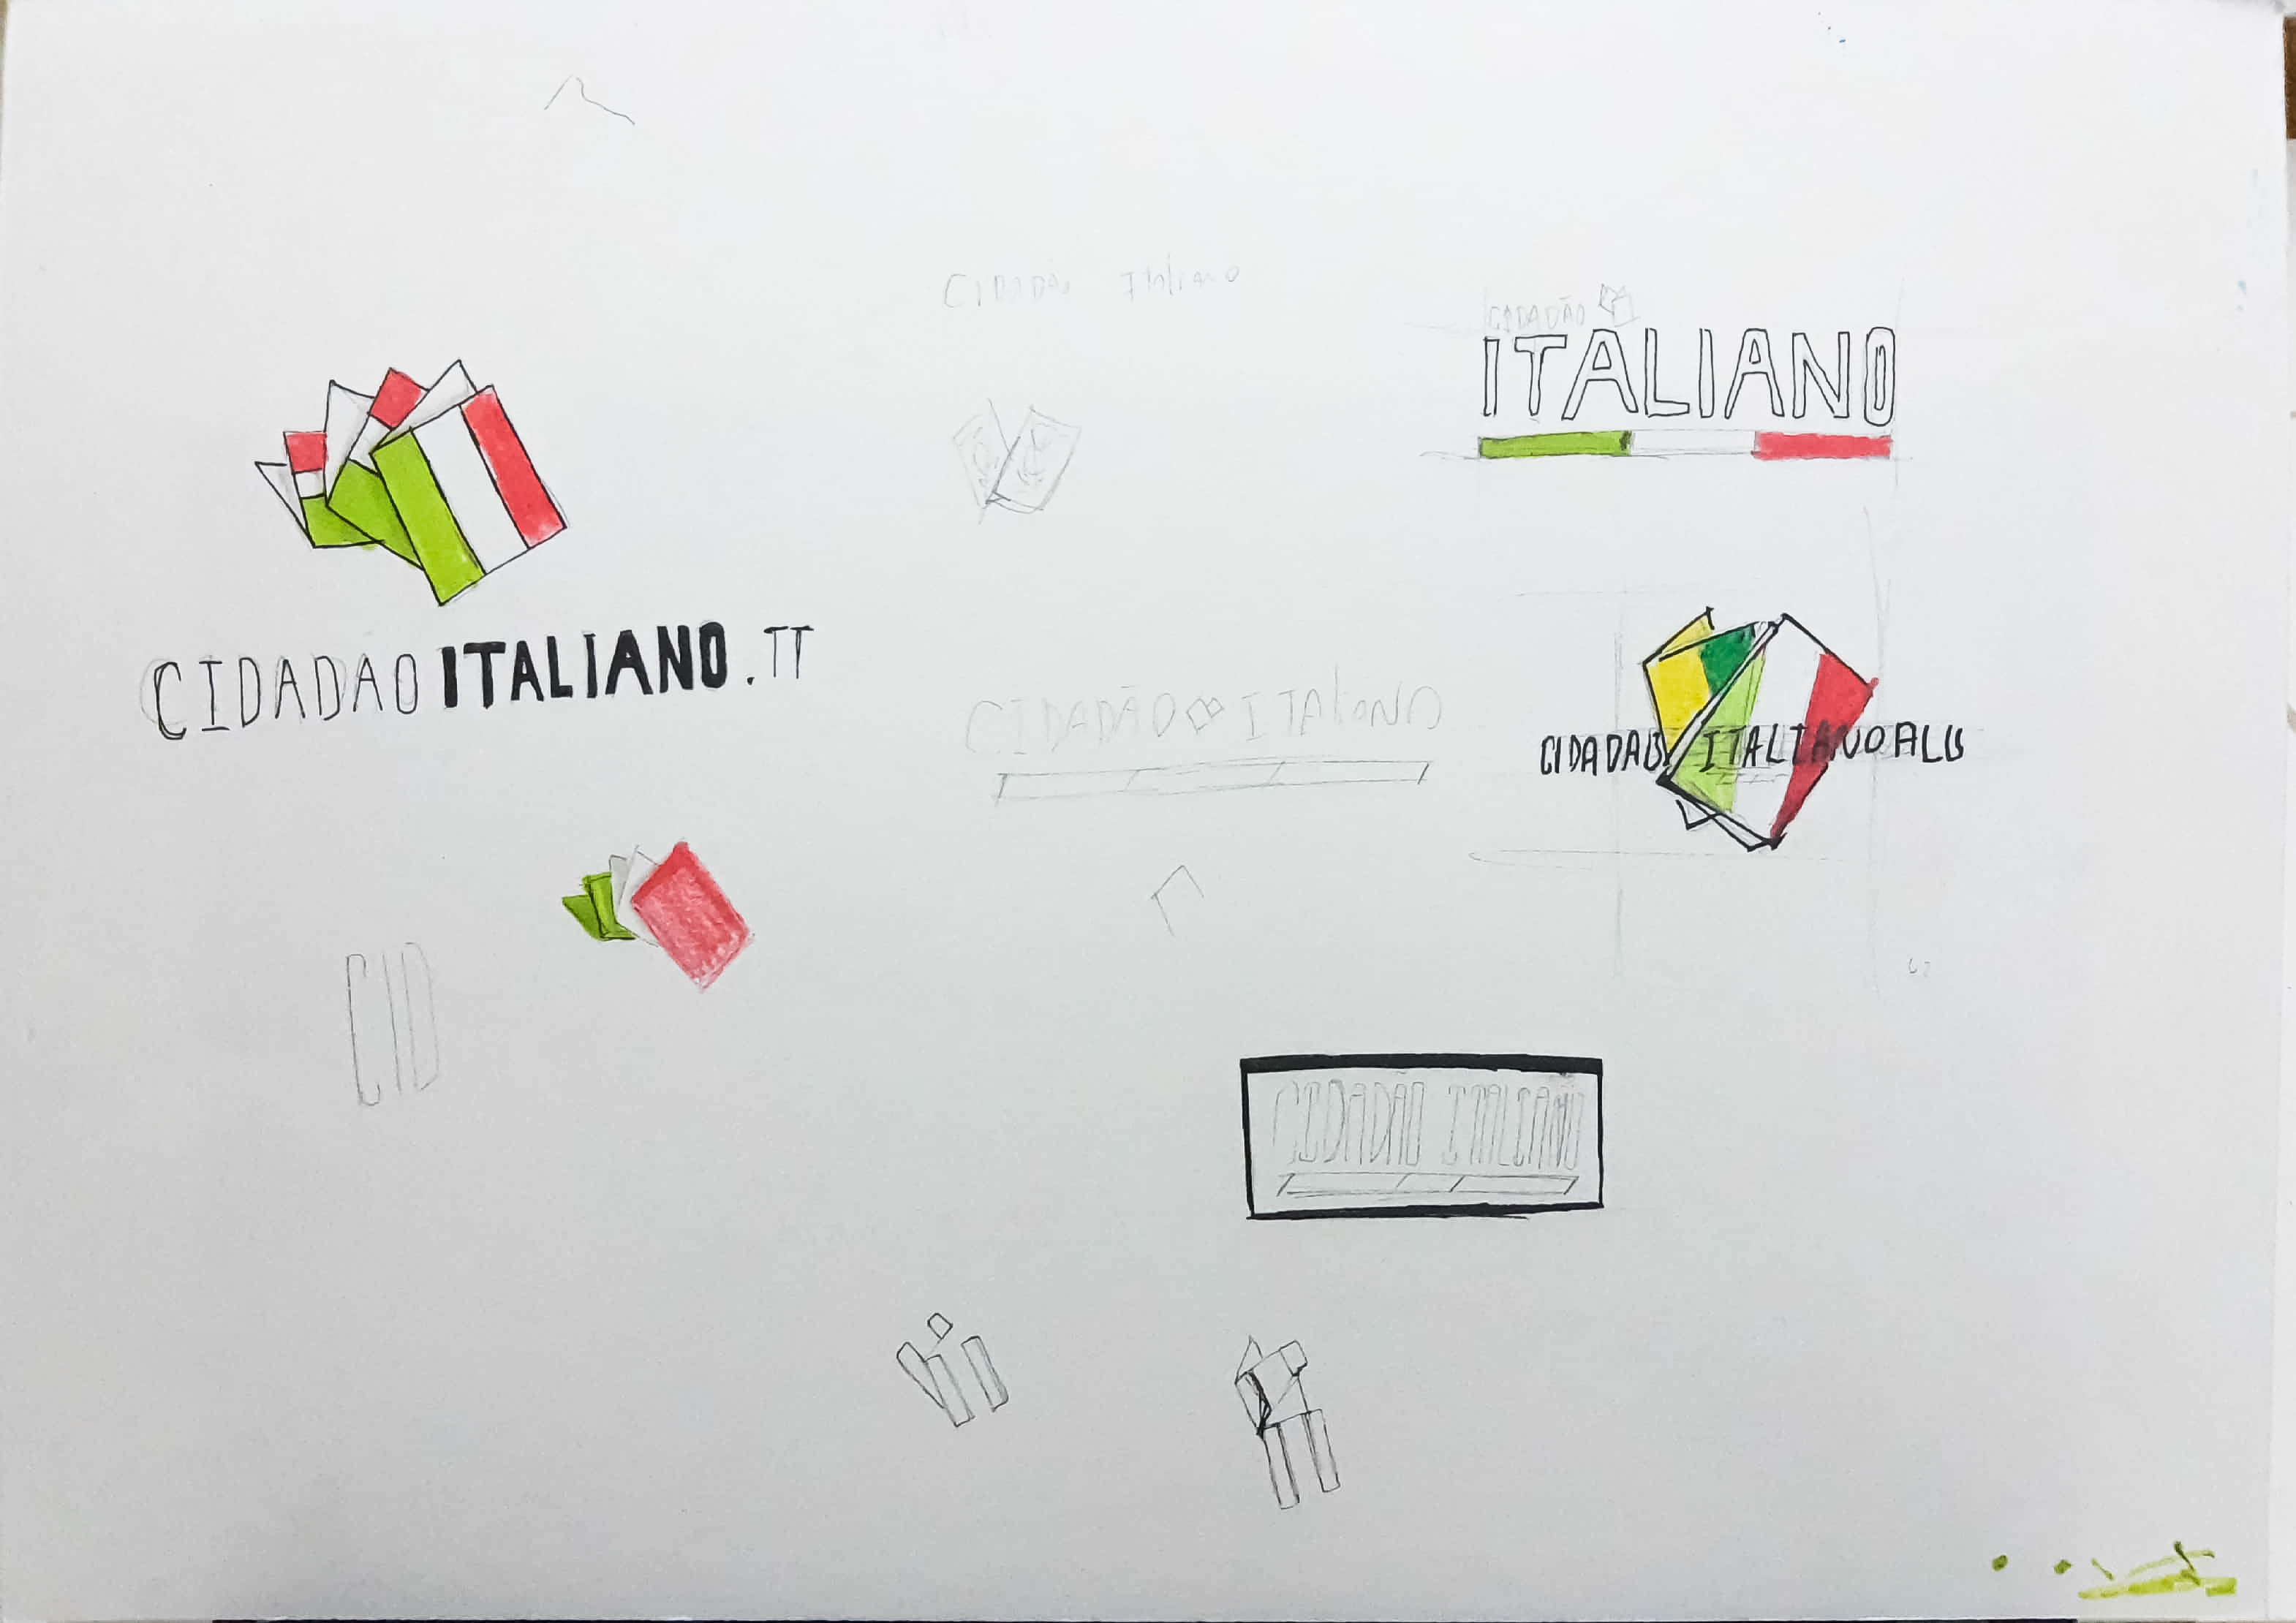 CIDADÃO Italiano
CIDADÃO
ITALIANO
CIDADAO ITALIANO.IT
CIDADÃO ITALIANO
CIDADAO ITALIANO
CID
CIDADÃO ITALIANO